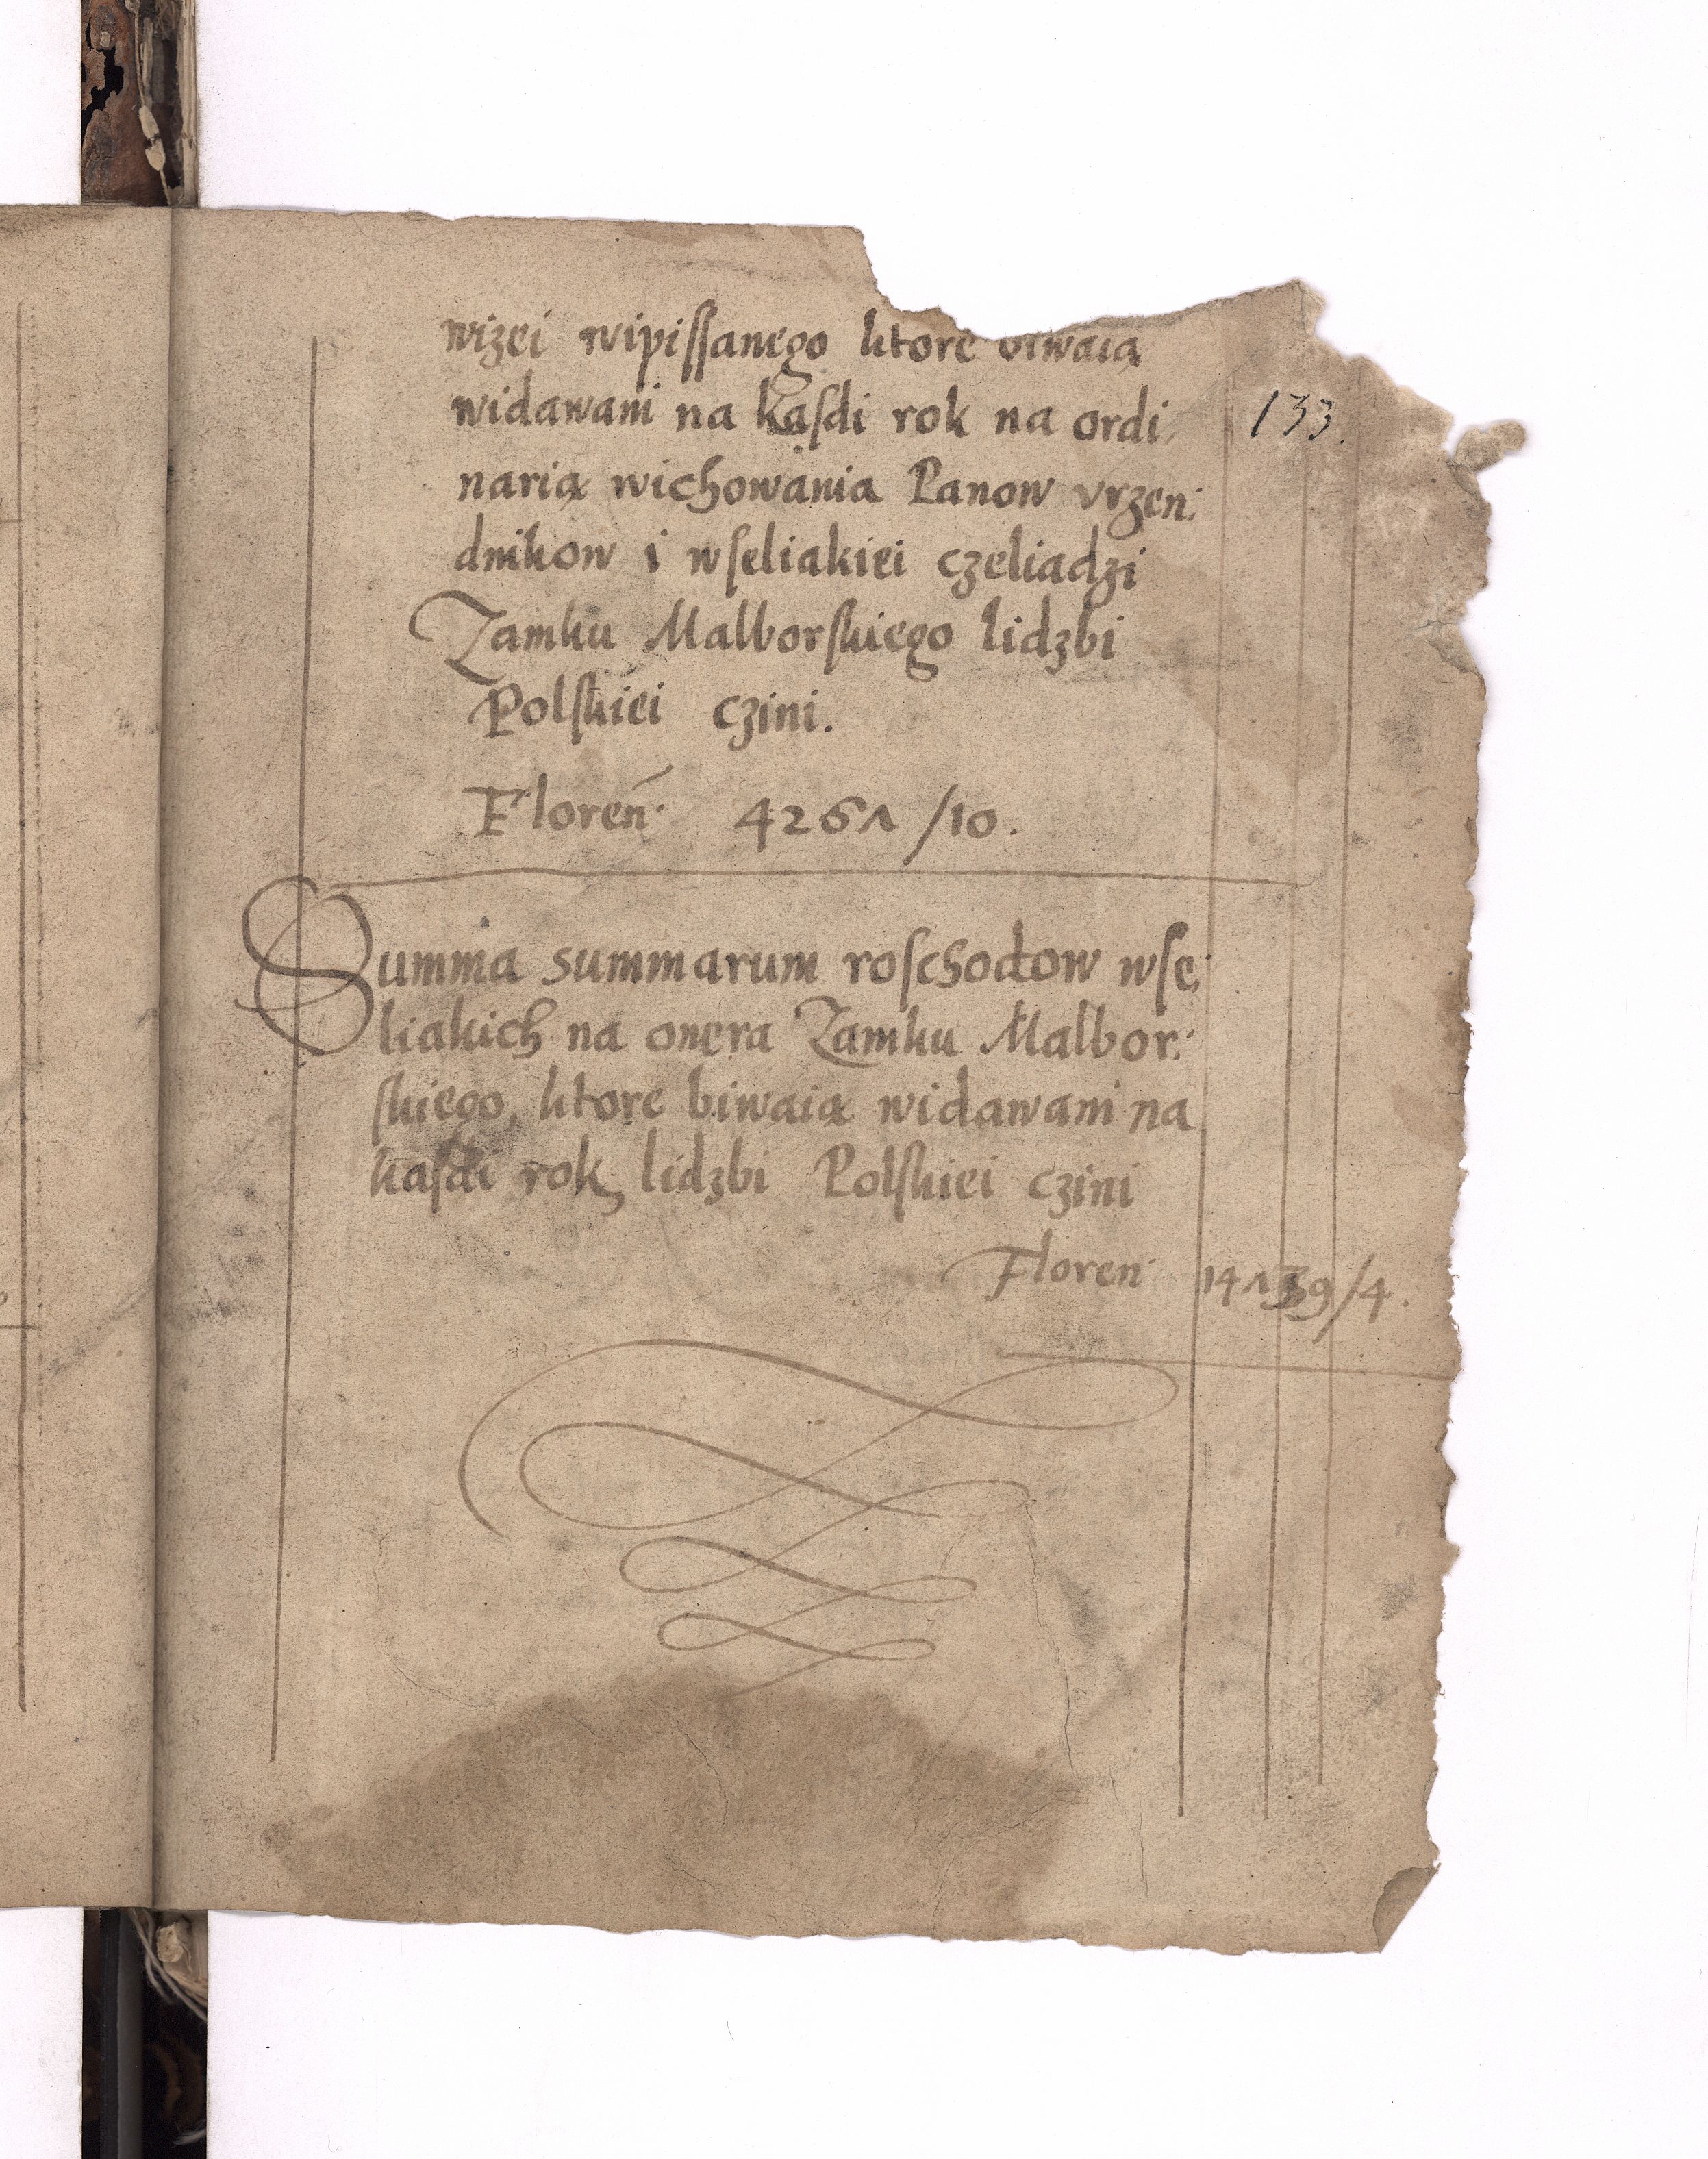 wizei wipiſſanego ktore biwaią
widawani na kaſdi rok na ordi:
133.
narią wichowania Panow vrzen:
dnikow i wſeliakiei czeliadzi
Zamku Malborſkiego lidzbi
Polſkiei czini.
Floren: 4261 /10.
Summa summarum roſchodow wſe:
liakich na onera Zamku Malbor:
ſkiego, ktore biwaią widawani na
kaſdi rok lidzbi Polſkiei czini
Floren 14139/4.